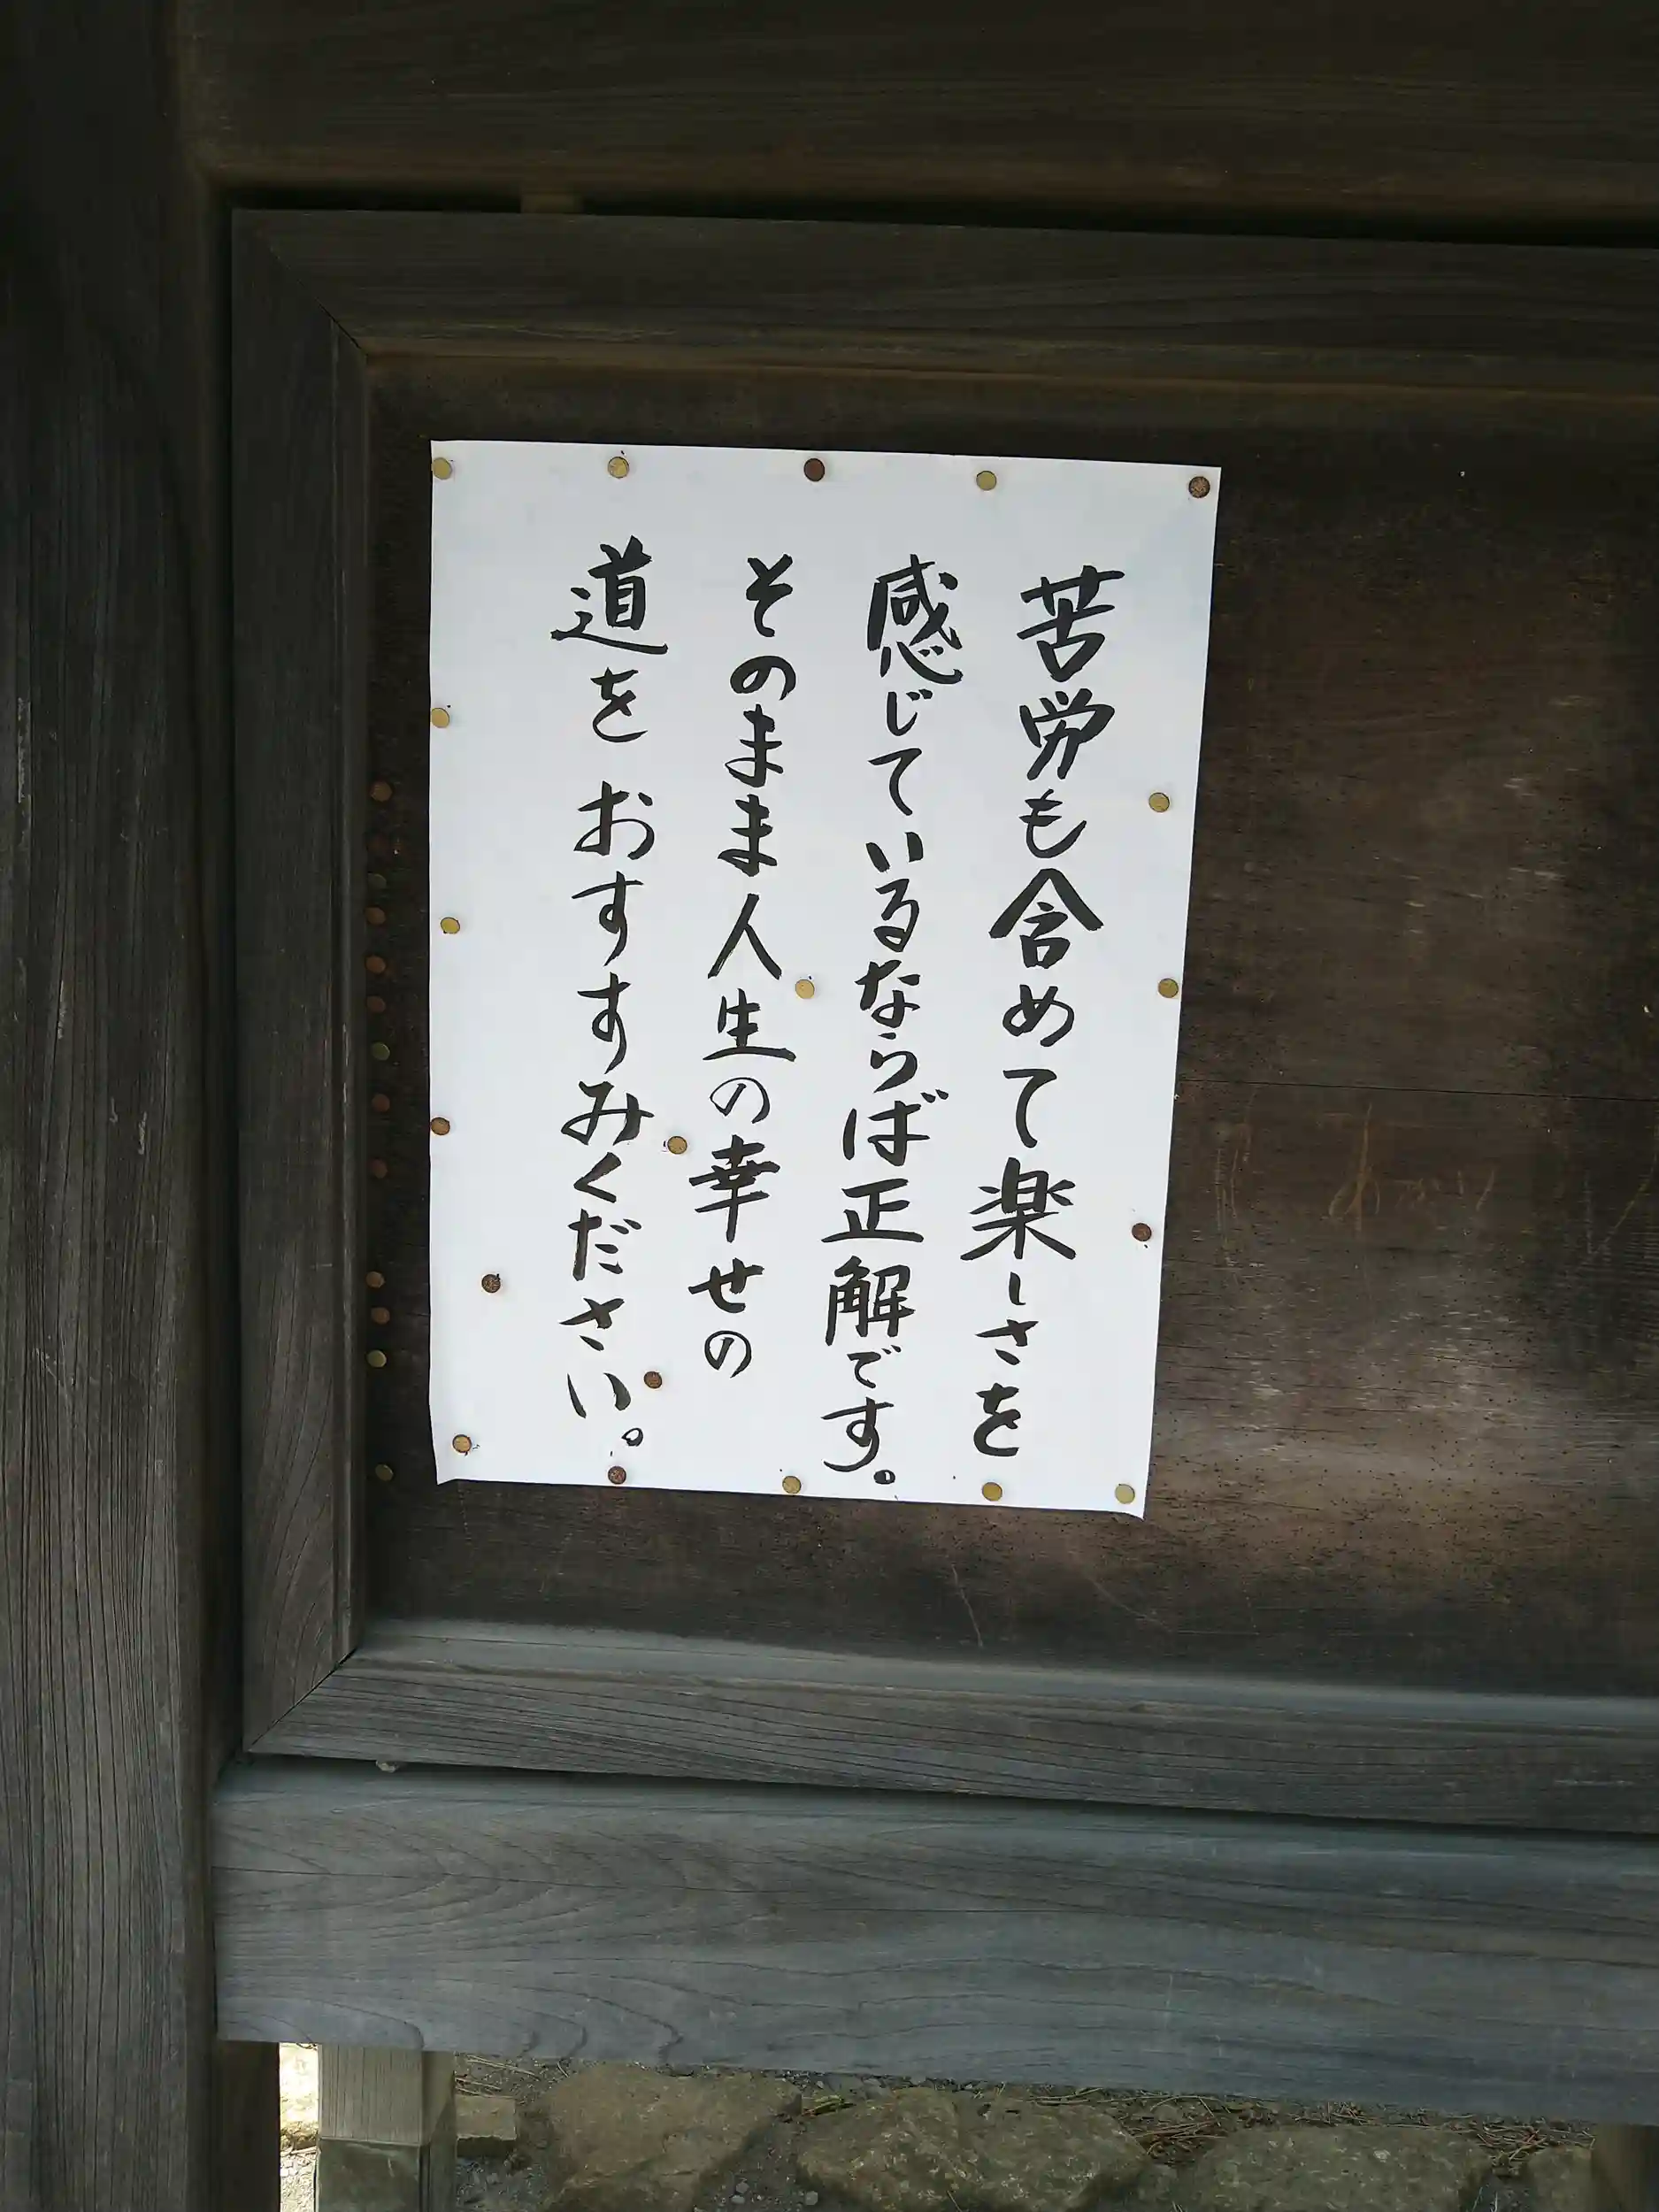 苦労も含めて楽しさを
感じているならば正解です。
そのまま人生の幸せの
道をおすすみください。